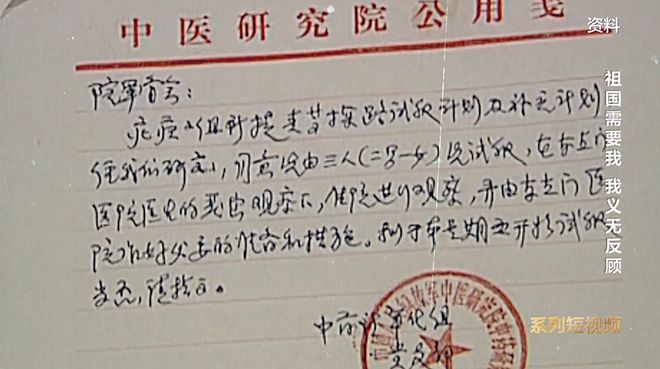 中医研究院公用笺
资料
祖国需要我 我义无反顾
院军管会：
疟疾小组所提探路试服计划及补充计划
经我们研究，同意先由三人(二男一女)先试服，在东直门
医院医生的严密观察下，住院进行观察，并由东直门医
院作好必要的准备和措施。拟于本星期五开始试服
当否，请指示。
中药所革化组
党支部
系列短视频